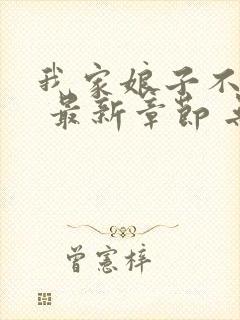 我家娘子不
最新章节
曾宪梓